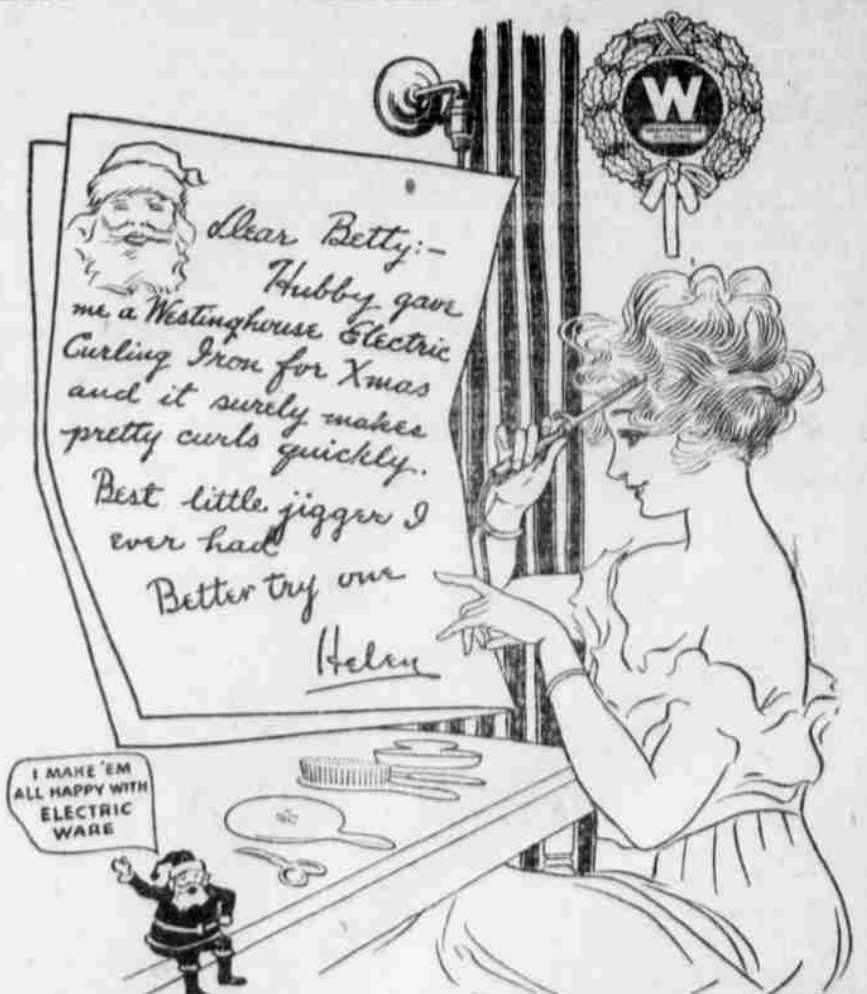 W
Dear Betty:-
Hubby gave
me a Westinghouse Electric
Curling Iron for Xmas
and it surely makes
pretty curls quickly.
Best little jigger I
ever had
Better try one
Helen
I MAKE 'EM
ALL HAPPY WITH
ELECTRIC
WARE